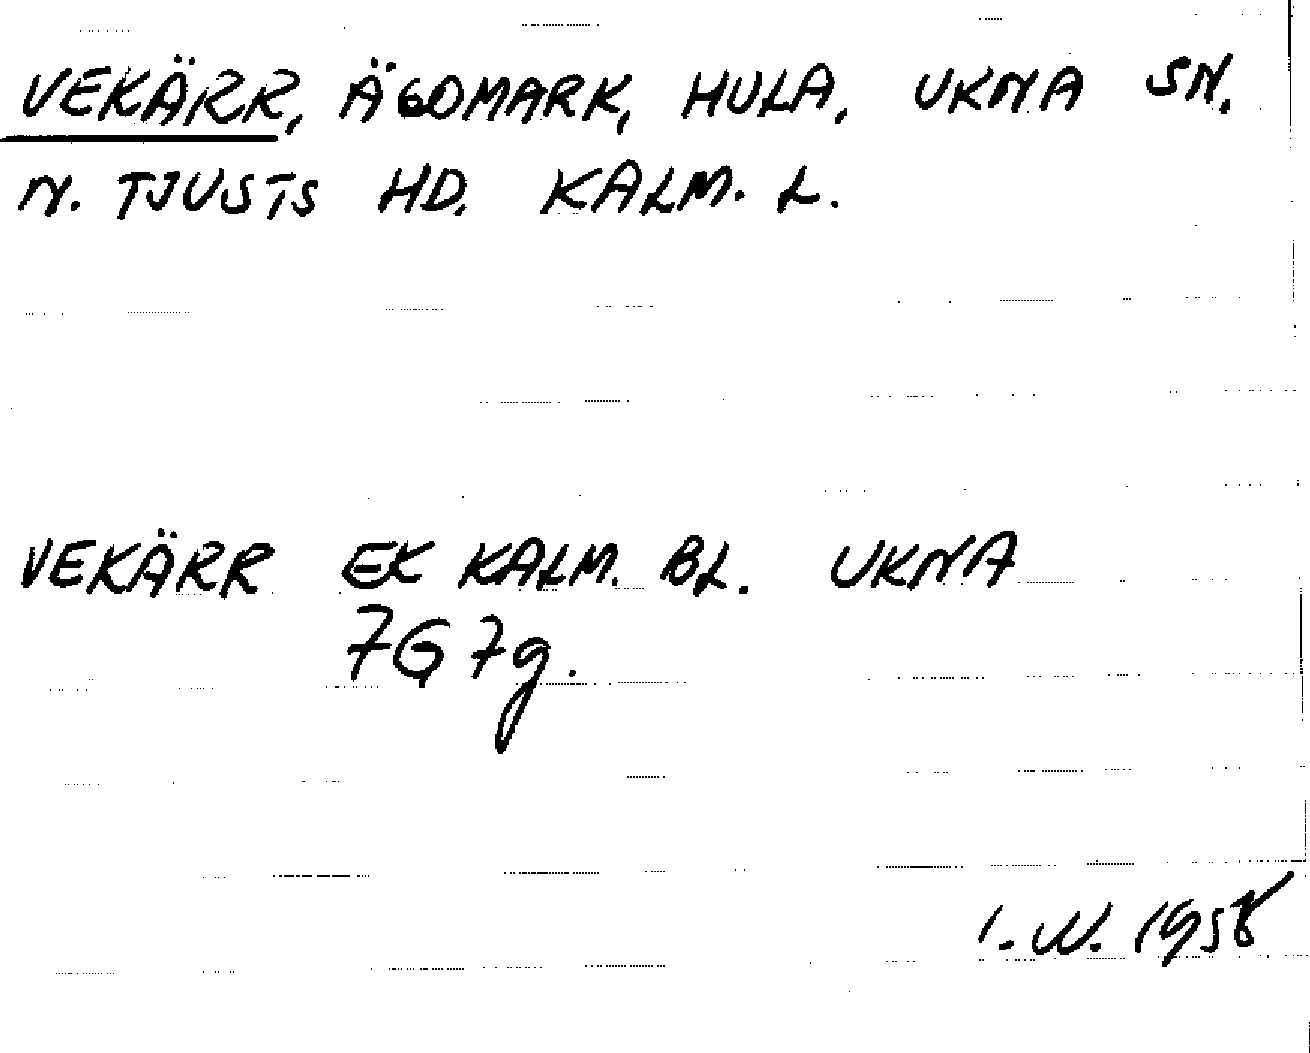 VEKÄRR, ÄGOMARK, HULA, UKNA SN.
N. TJUSTS HD. KALM. L.
VEKÄRR EK KALM. BL. UKNA
7G 7g.
I. W. 1958